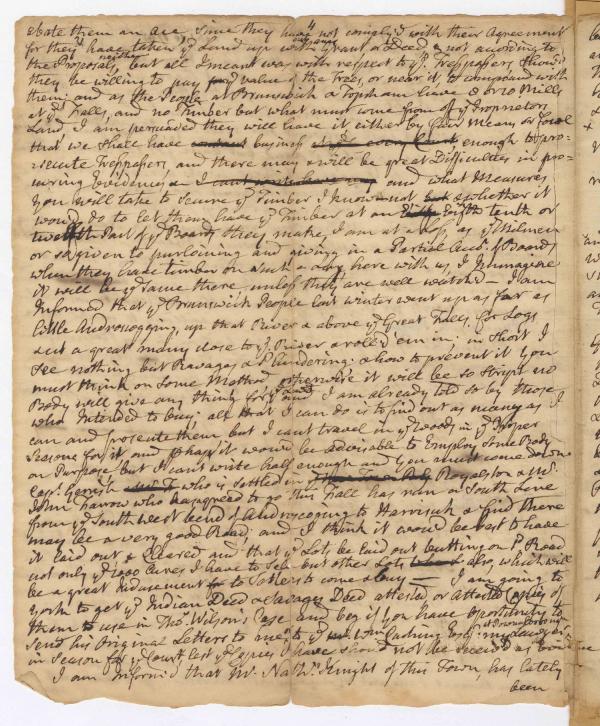 abate them an ace, Since they have not comply'd with their Agreement
for they have taken ye Land up without grant or Deed & not according to
the Proposals, but all I meant was with respect to ye Tresspassers, should
they be willing to pay value of the Trees, or near it to compound with
them; and as the People at Brunswick & Topsham have 8 or 10 Mills
at ye Falls, and no Timber but what must come from of ye Proprietors
Land, I am persuaded they will have it either by fair Means or foul
that we shall have business enough to pro-
-secute Tresspassers, and there may & will be great Difficulties in pro-
-curing Evidences and what Measures
You will take to Secure ye Timber I know not & whether it
would do to let them have ye Timber at an Eighth tenth or
twelfth Part of ye Boards they make, I am at a loss, as ye Milmen
or so given to purloining and giving in a Partial Acct. of Boards
when they have timber on such a lay here with us, I Immagine
it will be ye same there, unless they are well watched — I am
Informed that ye Brunswick People last winter went up as far as
little Androscoggin, up that River & above ye Great Falls, for Logs
& cut a great many close to ye River & roled 'em in; in short I
See nothing but Ravages & Plundering: & how to prevent it you
must think on some Method, otherwise it will be so stript no
Body will give any thing for ye Land I am already told so by those
who Intended to buy: all that I can do is to find out as many as I
can and prosecute them, but I cant travel in ye Woods in ye Proper
Seasons for it, and phaps it would be advisable to Employ Some Body
on Purpose but I cant write half enough and You must come down
Capt. Gerrish who is settled in Royalston & Mr.
John Farrow who has agreed to go this Fall has ran a South Line
from ye South west bend of Androscoggin to Harrisicket & find there
may be a very good Road, and I think it would be best to have
it laid out & Cleared and that ye Lots be laid out butting on sd. Road
not only ye 1000 Acres I have to Sell but other Lots also, which will
be a great Inducement to Settlers to come & buy — I am going to
York to get ye Indian Deed & Savages Deed attested, or Attested Copies of
them to use in Tho. Wilson's Case and beg if you have oppertunity to
Send his Original Letters to me, to ye Wm. Cushing Esqr. my Lawyer
in Season for ye Court, lest ye Copies I have should not be receiv'd as Evidence
I am Informed that Mr. Nathn. Knight of this Town, has lately
been